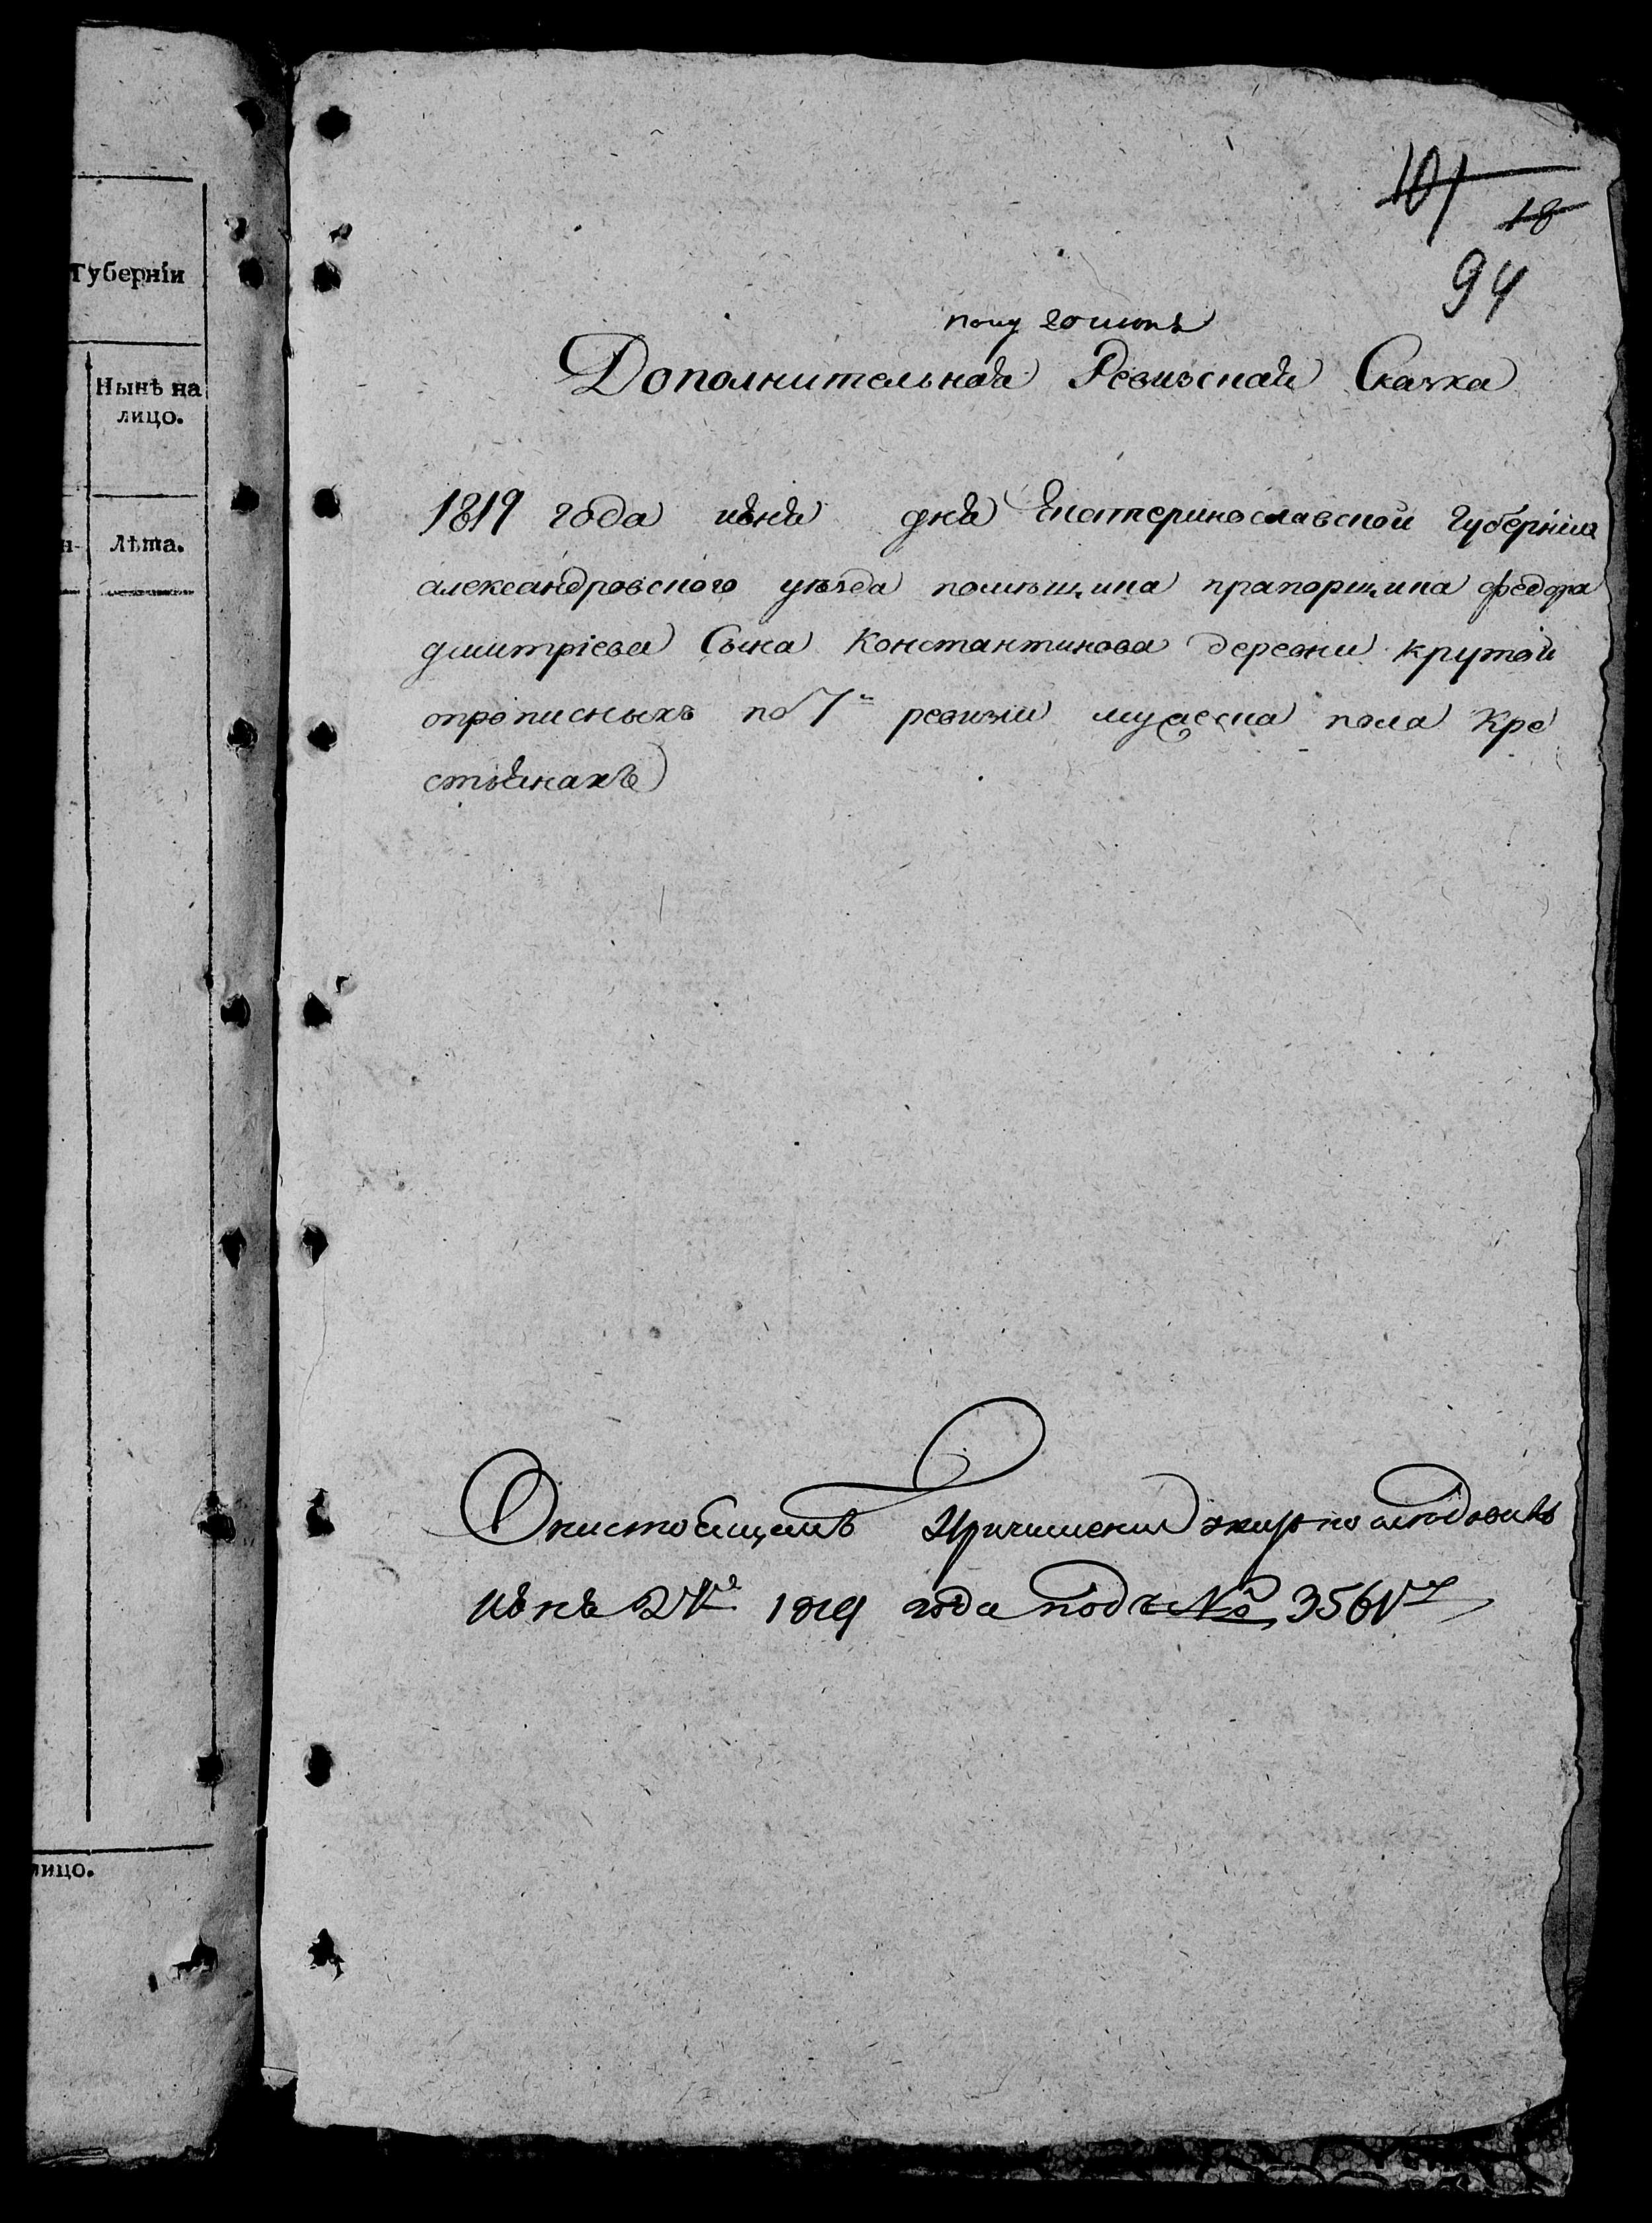 Губерніи
Нынѣ на
лицо.
Лѣта.
лицо.
101
18
94
полу 20 июня
Дополнительная Ревизская Сказка
1819 года июня дня Екатеринославской губерніи
александровского уѣзда помѣщика прапорщика федора
дмитріева Сына Константинова деревни крутой
опрописныхъ по 7й ревизіи мужеска пола Кре
стьянахъ
О настоящемъ Причислении
июня 2 1819 года подъ № 3561м